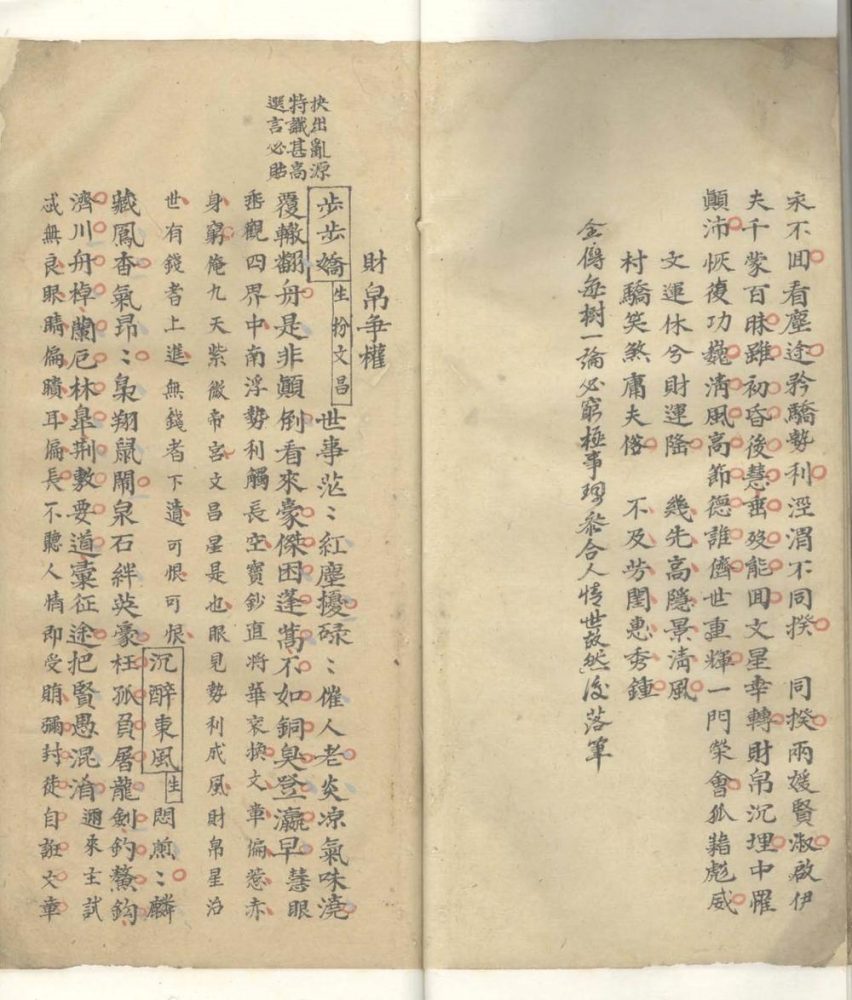 永不囬看塵途矜驕勢利涇渭不同揆 同揆兩媛賢淑啟伊
夫千蒙百昧雖初昏後慧臿殁能囬文星幸轉財帛沉埋中罹
顚沛恢復功巍淸風高節德誰儕世重輝一門荣會狐藉彪威
文運休兮財運隆 幾先高隱景淸風
村驕笑煞庸夫俗 不及芳閨惠秀鍾
每樹一論必窮極事理叅合人情世故然後落筆
財帛爭權
抉出亂源
特識甚高
選言必貼
步步嬌 生扮文昌 世事茫〻紅塵擾碌〻催人老炎凉氣味澆
覆轍翻舟是非顚倒看來豪傑困蓬蒿不如銅臭登瀛早 慧眼
乖觀四界中南浮勢利觸長空寶鈔直將華衮換文章偏惹赤
身窮俺九天紫微帝宮文昌星是也眼見勢利成風財帛星治
世有錢者上進無錢者下遺可恨可恨 沉醉東風 生 悶煎〻麟
藏鳳杳氣昂〻梟翔鼠鬧泉石絆英豪枉孤負屠龍劍釣鰲鈎
濟川舟棹蘭巵林臯荆敷要道橐征途把賢愚混淆 邇來主試
忒無良眼睛偏瞶耳偏長不聽人情即受賄彌封徒自誑文章